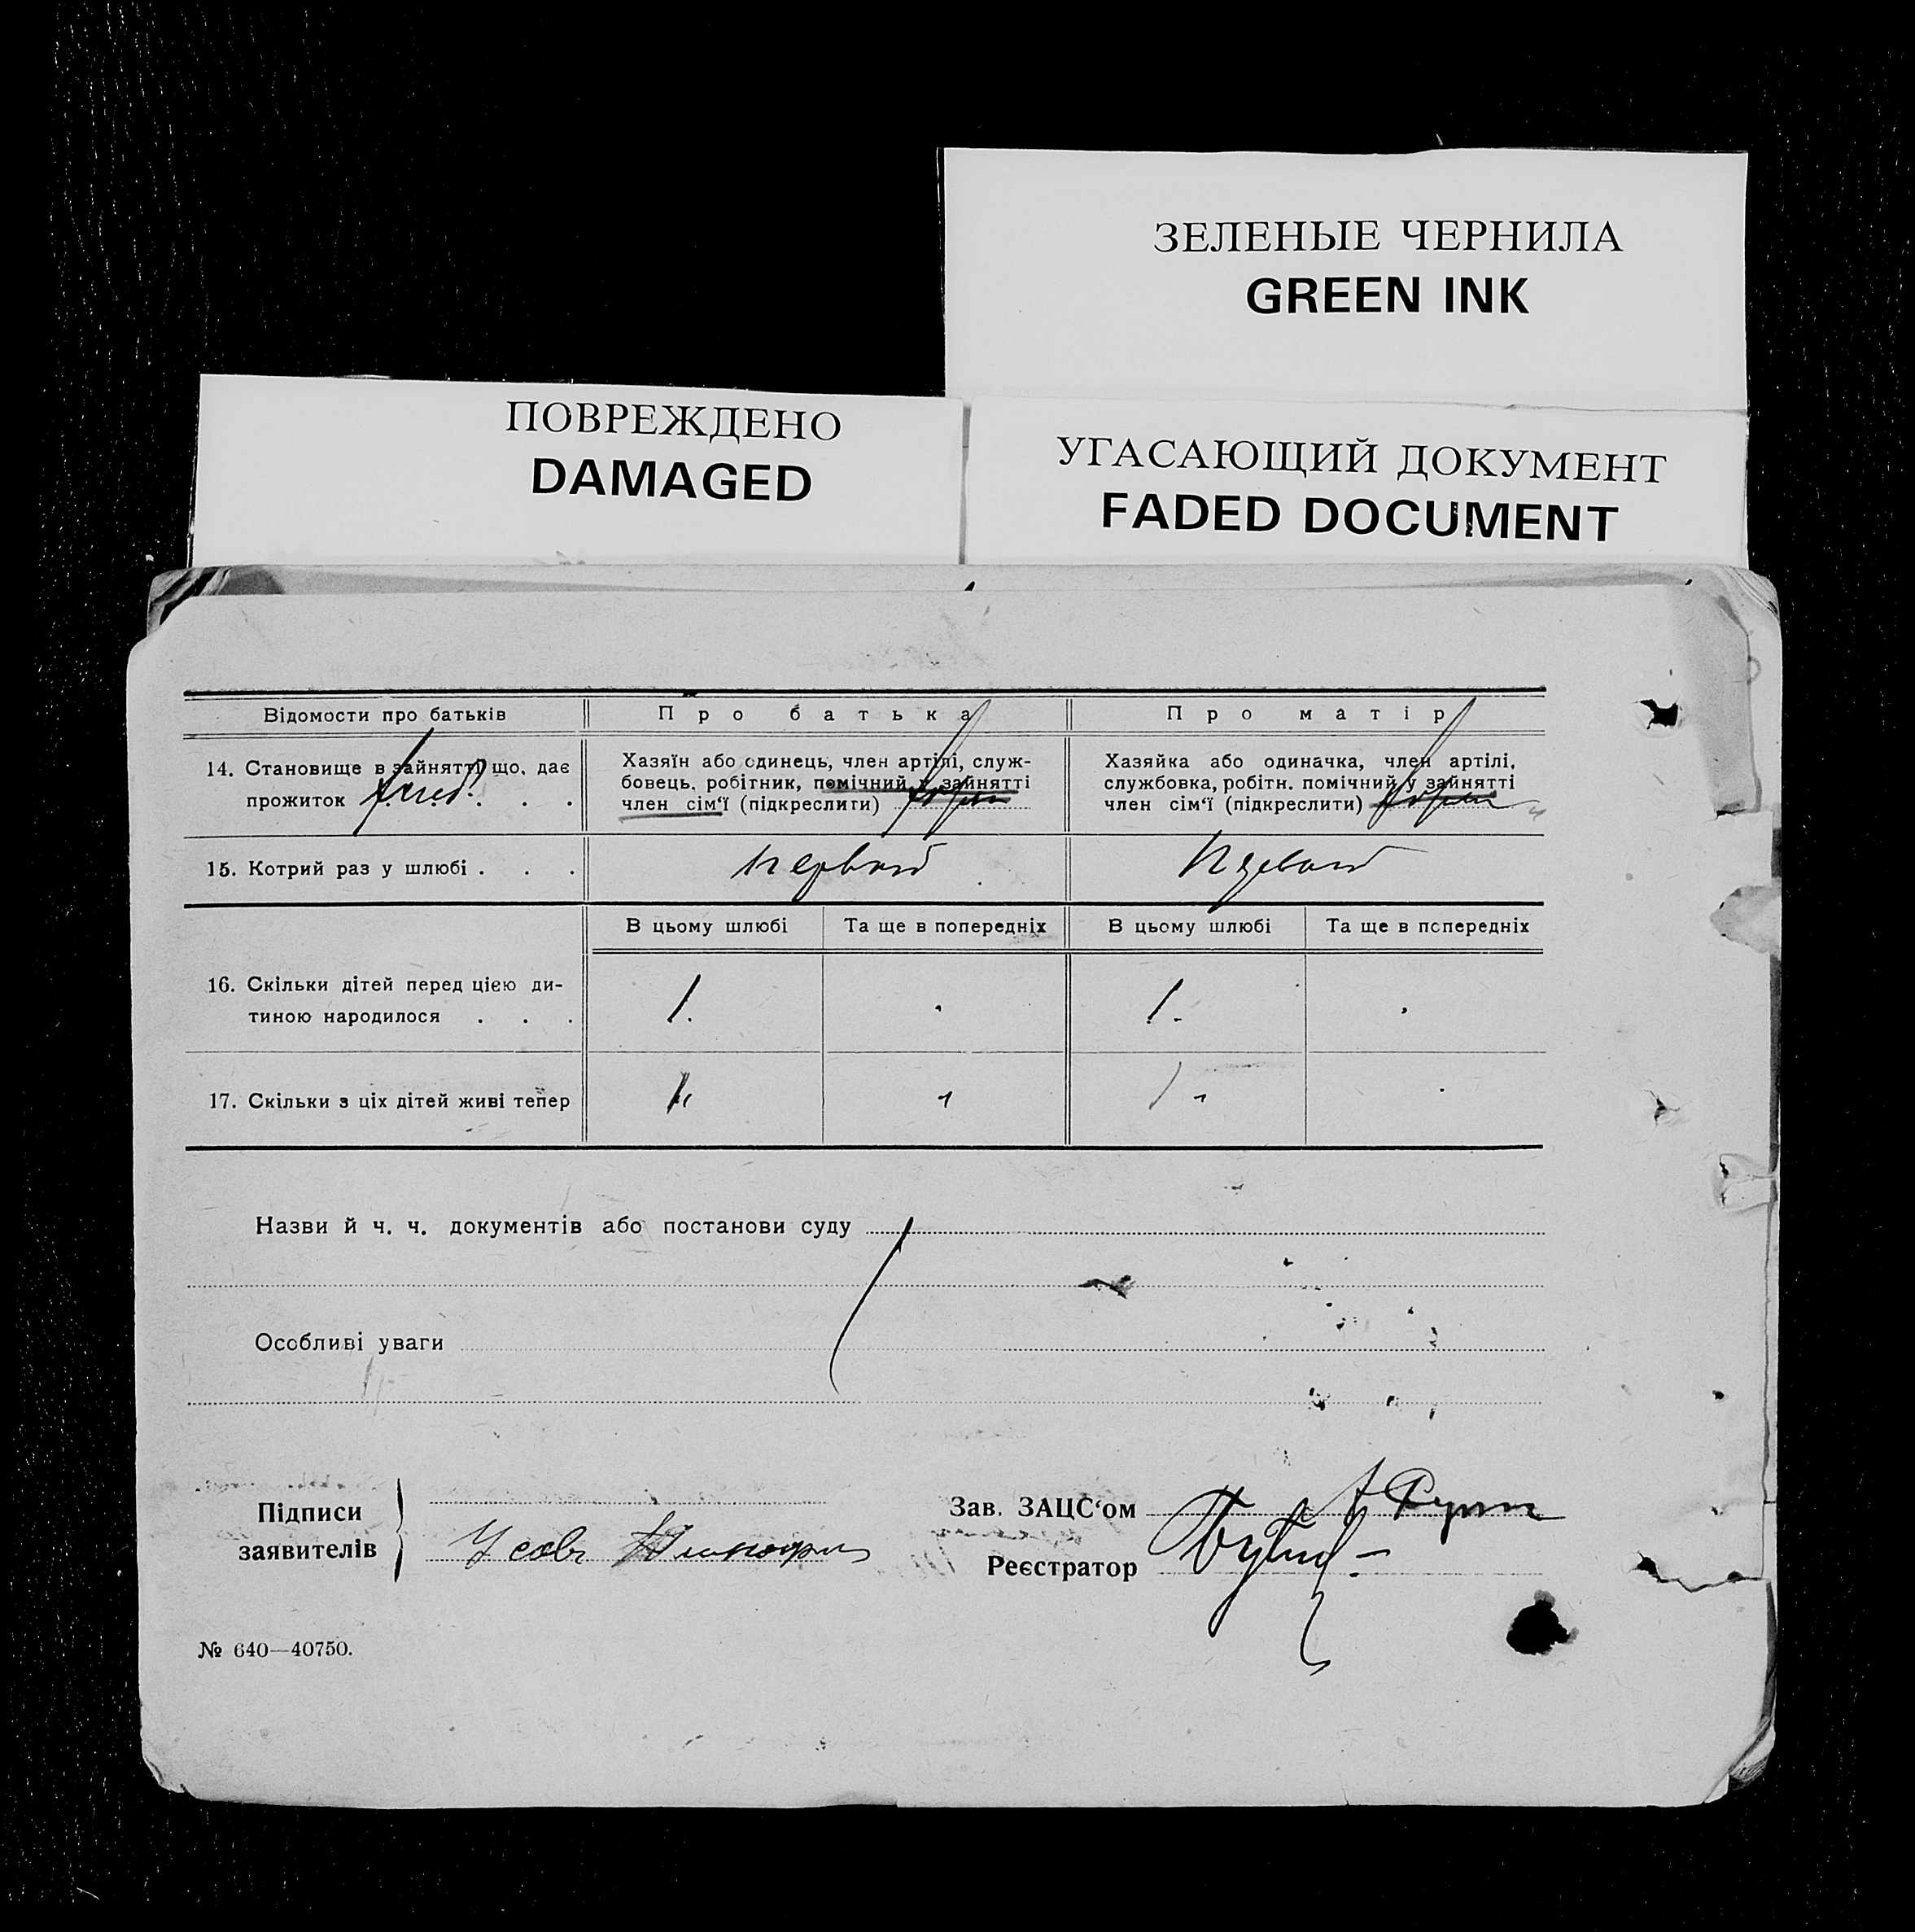 ЗЕЛЕНЫЕ ЧЕРНИЛА
GREEN INK
ПОВРЕЖДЕНО
DAMAGED
УГАСАЮЩИЙ ДОКУМЕНТ
FADED DOCUMENT
Відомости про батьків
Про батька
Про матір
14. Становище в зайнятті що, дає
прожиток . . .
Хазяїн або одинець, член артілі, служ-
бовець, робітник, помічний у зайнятті
член сім‘ї (підкреслити)
Хазяйка або одиначка, член артілі,
службовка, робітн. помічний у зайнятті
член сім‘ї (підкреслити)
15. Котрий раз у шлюбі . . .
первый
первый
В цьому шлюбі
Та ще в попередніх
В цьому шлюбі
Та ще в попередніх
16. Скільки дітей перед цією ди-
тиною народилося . . .
1.
1.-
17. Скільки з ціх дітей живі тепер
1
1
Назви й ч. ч. документів або постанови суду
Особливі уваги
Підписи
заявителів
Усовъ
Зав. ЗАЦС‘ом
Реєстратор
№ 640—40750.